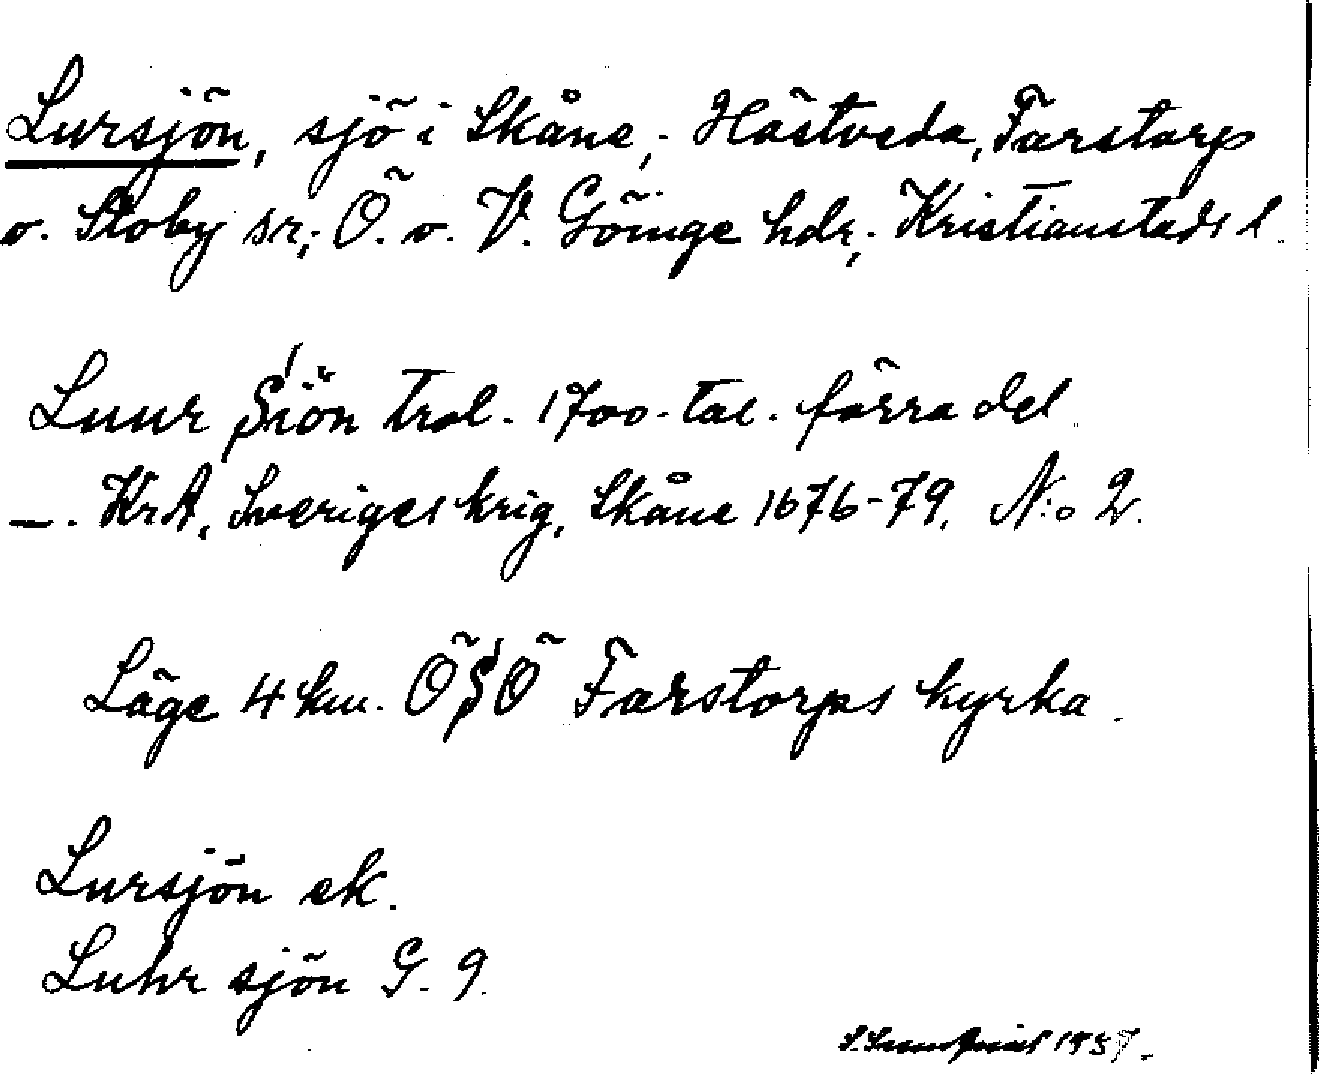 Lursjön, sjö i Skåne, Hästveda, Farstorp
o. Stoby sr, Ö. o. V. Göinge hdr, Kristianstads l.
Luur Siön trol. 1700-tal. förra del
–. KrA, Sveriges krig, Skåne 1676-79. N:o 2.
Läge 4 km. ÖSÖ Farstorps kyrka.
Lursjön ek.
Luhr sjön G. 9.
1937.